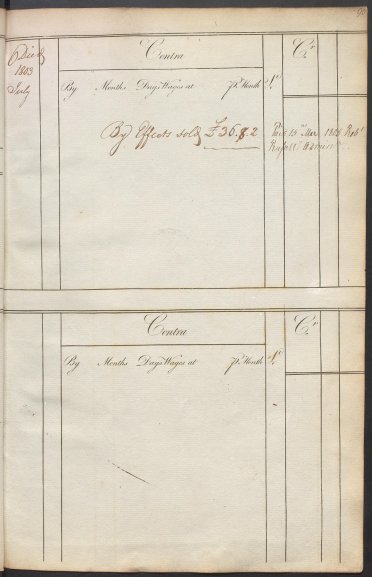 Died
1803
July
Contra
Cr
By Months Days Wages at Pr. Month
By Effects sold £36.8.2
Paid 15 Mar 1805 Robt
Contra
Cr
By Months Days Wages at Pr. Month